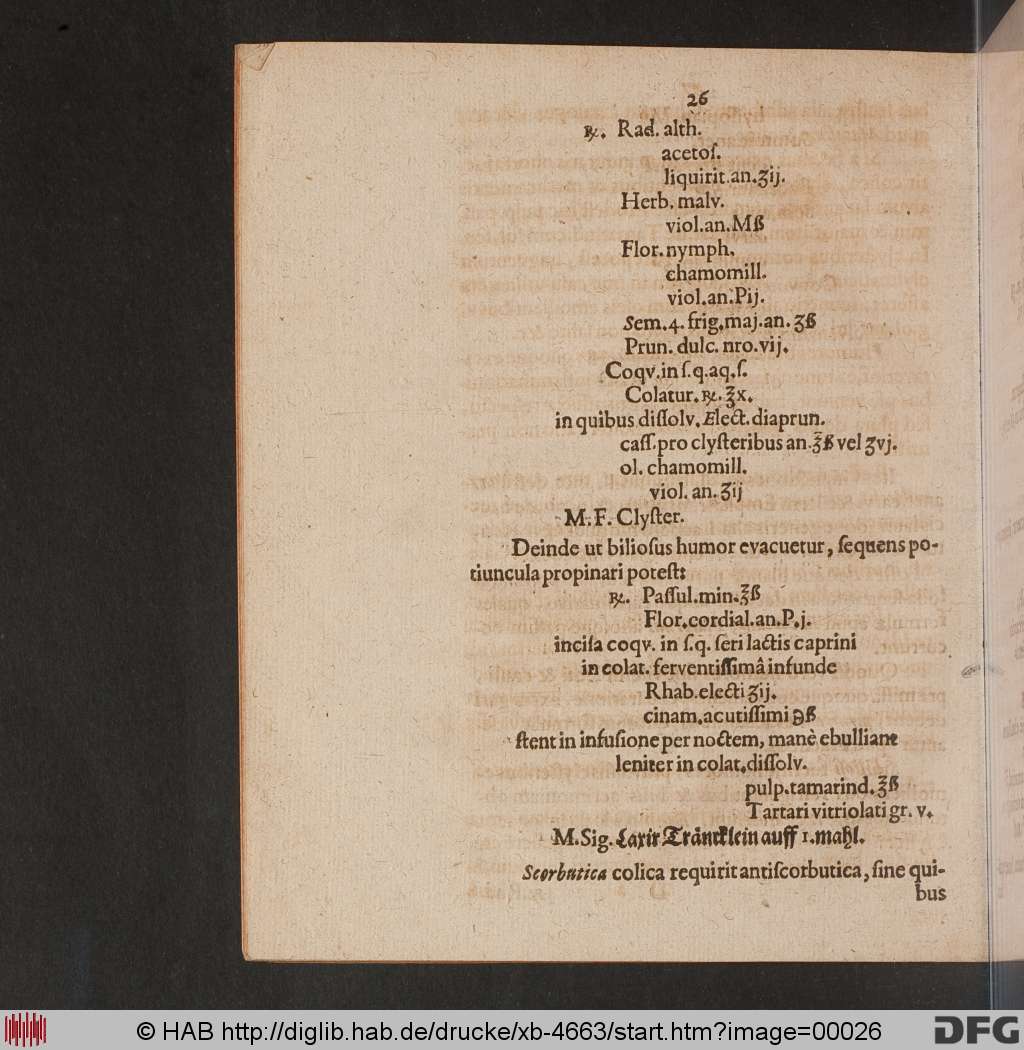 26
℞. Rad. alth.
acetoſ.
liquirit.an.ʒij.
Herb. malv.
viol.an.Mß
Flor. nymph.
chamomill.
viol.an.Pij.
Sem.4. frig.maj.an. ʒß
Prun. dulc. nro.vij.
Coqv.in ſ.q.aq.ſ.
Colatur.℞.℥x.
in quibus diſſolv. Elect. diaprun.
caſſ.pro clyſteribus an.℥ß vel ʒvj.
ol. chamomill.
viol. an. ʒij
M. F. Clyſter.
Deinde ut bilioſus humor evacuetur, ſequens po-
tiuncula propinari poteſt:
℞. Paſſul.min.℥ß
Flor.cordial.an.P.j.
inciſa coqv. in ſ.q. ſeri lactis caprini
in colat. ferventiſſimâ infunde
Rhab.electi ʒij.
cinam.acutiſſimi ℈ß
ſtent in infuſione per noctem, manè ebulliant
leniter in colat.diſſolv.
pulp.tamarind.℥ß
Tartari vitriolati gr. v.
M.Sig. Laxir Tråncklein auff 1.mahl.
Scorbutica colica requirit antiſcorbutica, ſine qui-
bus
© HAB http://diglib.hab.de/drucke/xb-4663/start.htm?image=00026
DFG